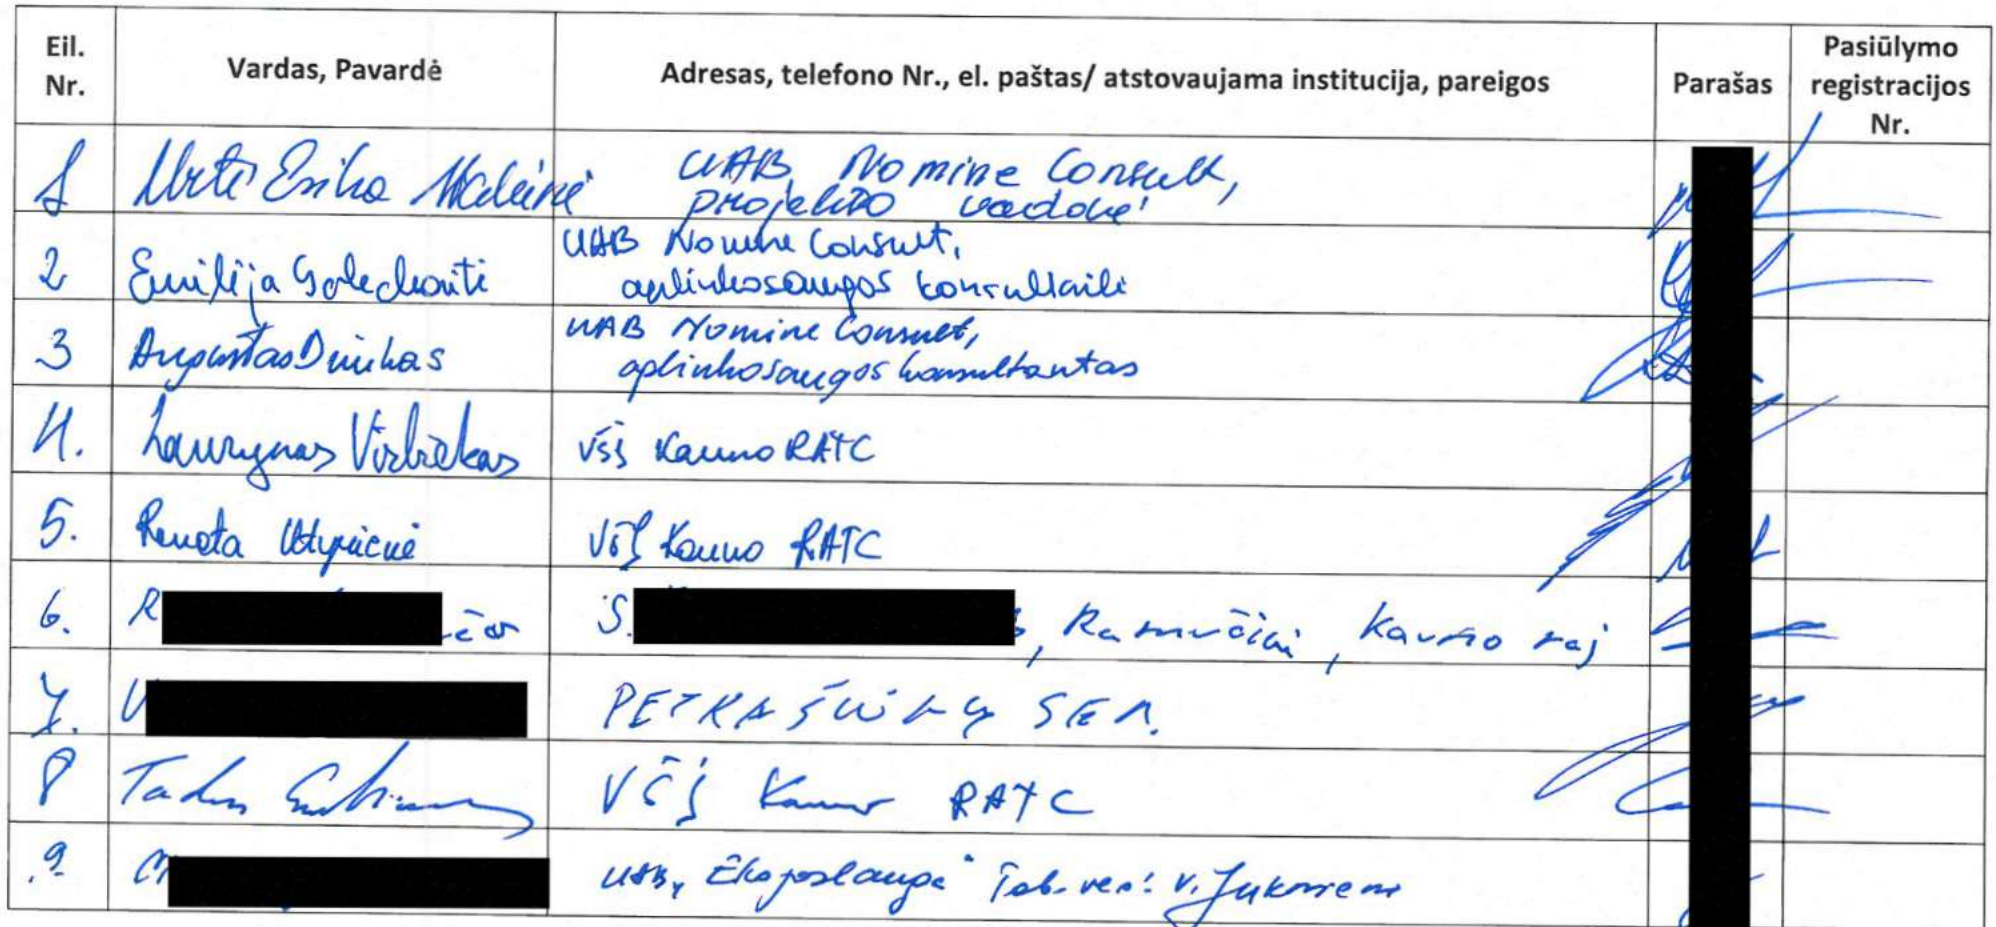 Eil. Nr.
Vardas, Pavardė
Adresas, telefono Nr., el. paštas/ atstovaujama institucija, pareigos
Parašas
Pasiūlymo registracijos Nr.
1
UAB Nomine Consult,
projekto vadovė
2 Emilija
UAB Nomine Consult,
aplinkosaugos konsultantė
3 Augustas
UAB Nomine Consult,
aplinkosaugos konsultantas
4. Laurynas VšĮ Kauno RATC
5. Renata VšĮ Kauno RATC
6. R S. , Ramučiai, Kauno raj
7. V PETRAŠIŪNŲ SEN.
8 VŠĮ Kauno RATC
9 UAB